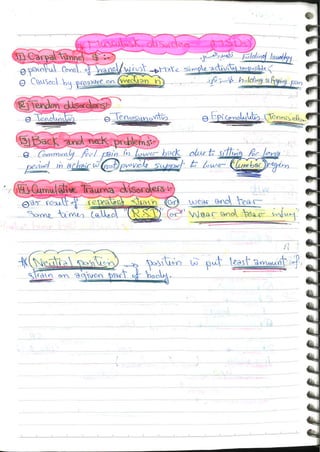 Musculosk disorders (MSDs)
[1] Carpal tunnel $ :-
folding laundry
⊖ painful cond. of hand/wrist → Make simple activity impossible
⊖ Caused by pressure on median n
holding & typing pen
[2] Tendon disorders:-
⊖ Tendinitis ⊖ Tenosynovitis ⊖ Epicondylitis (Tennis elbow
[3] Back and neck problems:-
⊖ Commonly feel pain in lower back due to sitting for long
period in a chair w not provide support to lower lumbar region.
[4] Cumulative Trauma disorders:-
⊖ as result of repeated strain (or) wear and tear
Some times called RSI (or) Wear and tear injury
* Neutral position → position w put least amount of
strain on a given part of body.